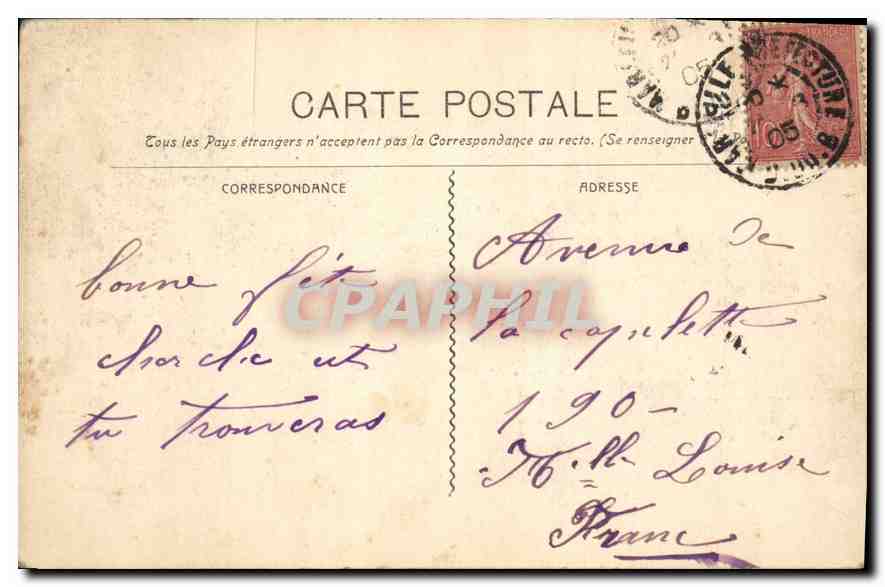 CARTE POSTALE
Tous les Pays étrangers n'acceptent pas la Correspondance au recto. (Se renseigner
CORRESPONDANCE
ADRESSE
bonne fête
cherche et
tu trouveras
Avenue de
la capelette
190
Melle Louise
Franc
MARSEILLE PREFECTURE B. DU R.
05
10
CPAPHIL